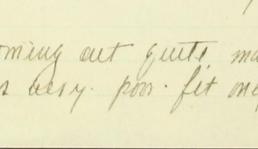 ming out quite ma
s very. poor. fit on